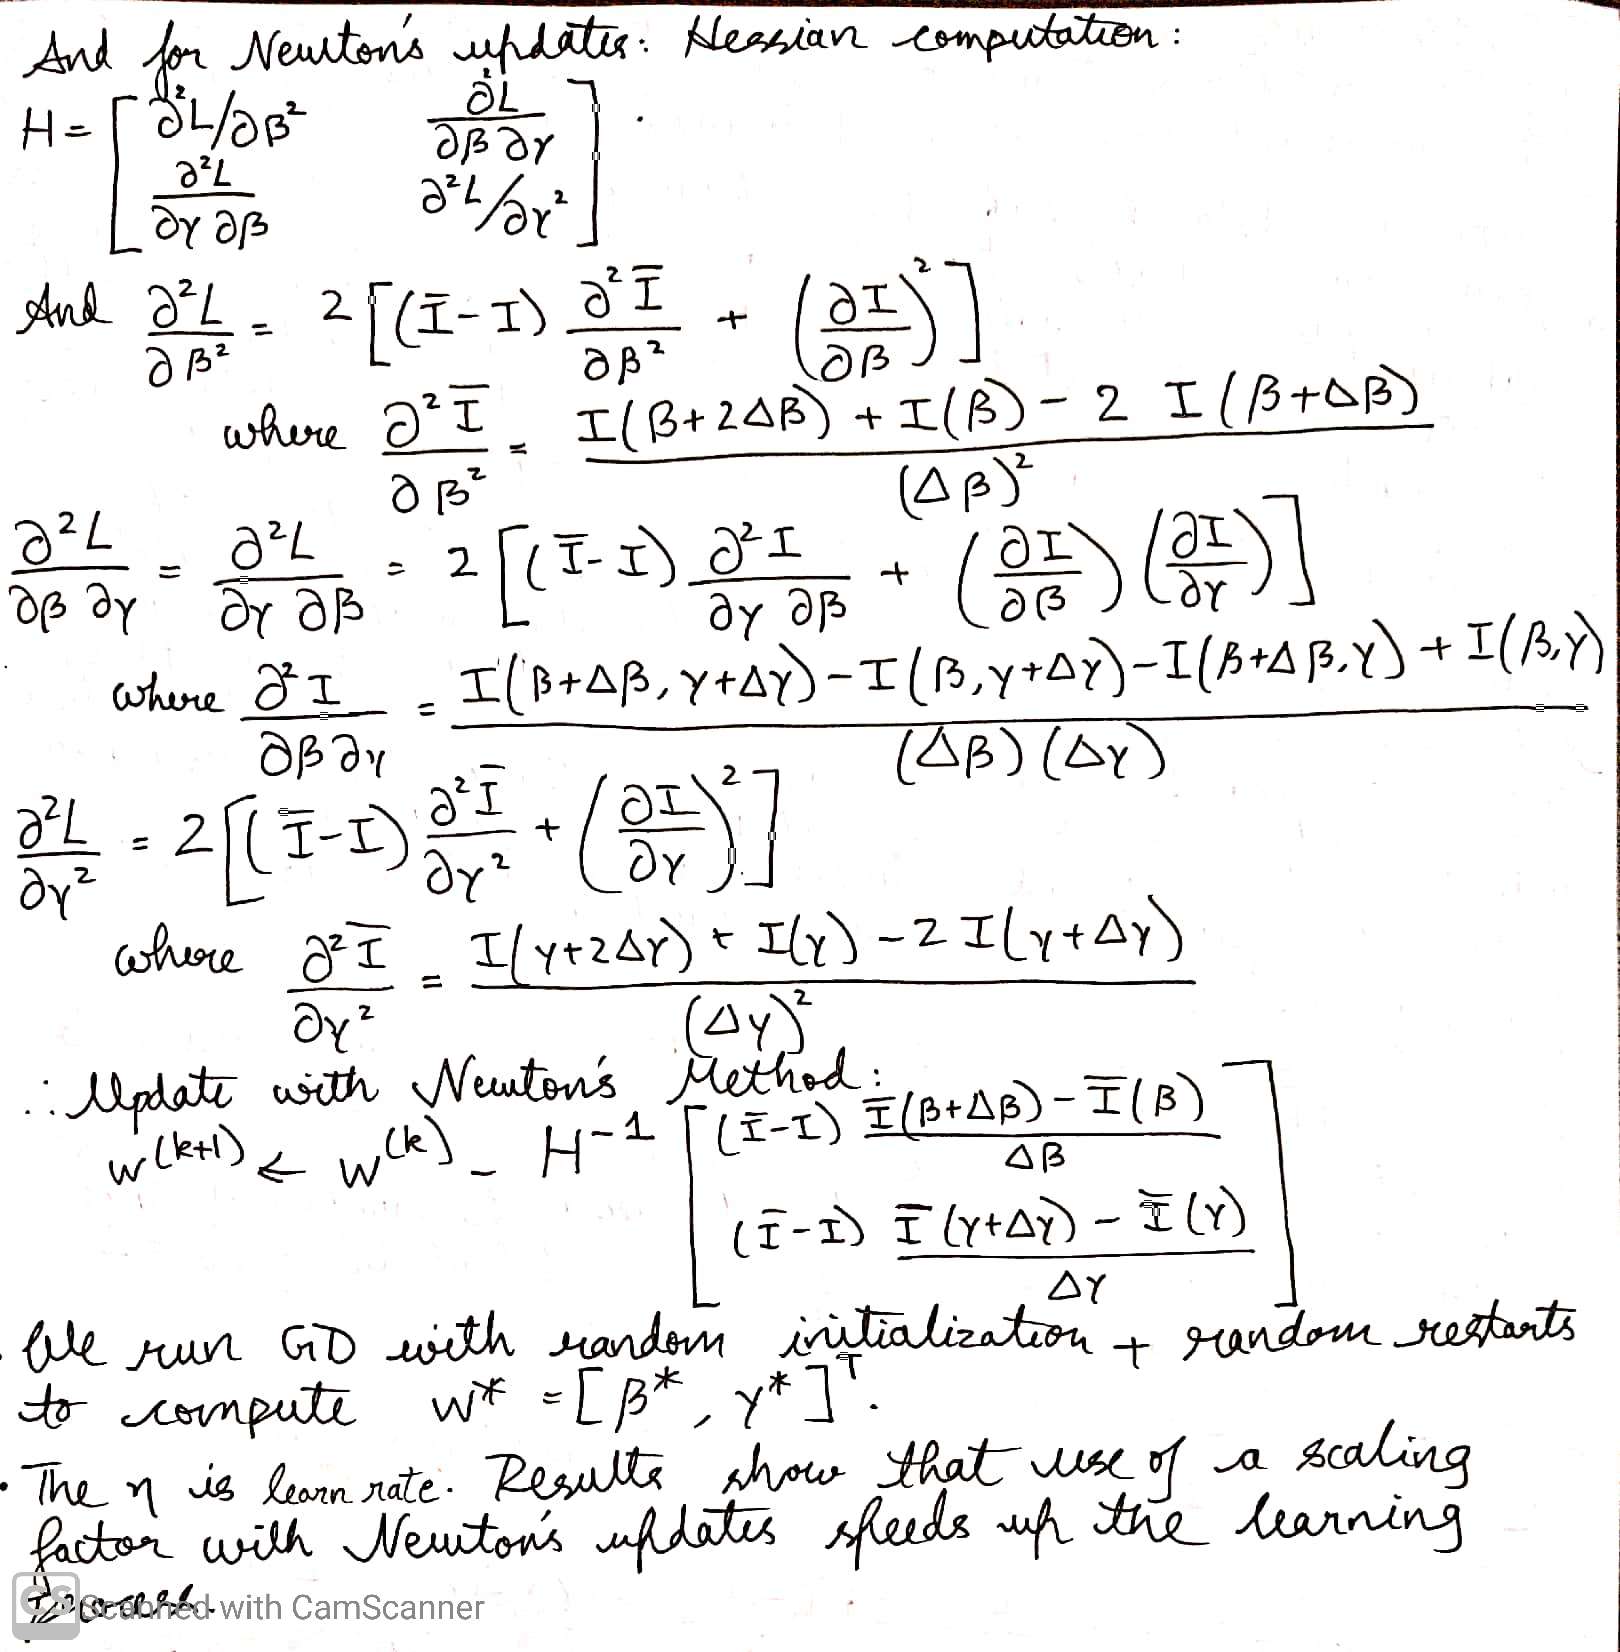 And for Newton's updates: Hessian computation:
H = [ ∂²L/∂β² ∂²L/∂β ∂γ ].
[ ∂²L/∂γ ∂β ∂²L/∂γ² ]
And ∂²L/∂β² = 2 [(Ī-I) ∂²Ī/∂β² + (∂I/∂β)²]
where ∂²Ī/∂β² = I(β+2Δβ) + I(β) - 2 I(β+Δβ) / (Δβ)²
∂²L/∂β ∂γ = ∂²L/∂γ ∂β = 2 [(Ī-I) ∂²I/∂γ ∂β + (∂I/∂β) (∂I/∂γ)]
where ∂²I/∂β ∂γ = I(β+Δβ, γ+Δγ) - I(β, γ+Δγ) - I(β+Δβ, γ) + I(β,γ) / (Δβ) (Δγ)
∂²L/∂γ² = 2 [(Ī-I) ∂²Ī/∂γ² + (∂I/∂γ)²]
where ∂²Ī/∂γ² = I(γ+2Δγ) + I(γ) - 2 I(γ+Δγ) / (Δγ)²
∴ Update with Newton's Method:
w^(k+1) ← w^(k) - H^-1 [ (Ī-I) Ī(β+Δβ) - Ī(β) / Δβ
(Ī-I) Ī(γ+Δγ) - Ī(γ) / Δγ ]
We run GD with random initialization + random restarts
to compute w* = [β*, γ*]^T.
• The η is learn rate. Results show that use of a scaling
factor with Newton's updates speeds up the learning
process.
CS Scanned with CamScanner